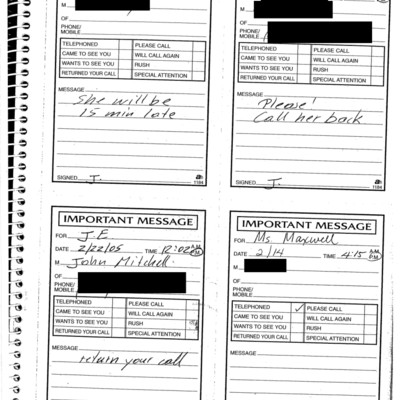 M
OF
PHONE/
MOBILE
TELEPHONED PLEASE CALL
CAME TO SEE YOU WILL CALL AGAIN
WANTS TO SEE YOU RUSH
RETURNED YOUR CALL SPECIAL ATTENTION
MESSAGE
She will be
15 min late
SIGNED J. 1184
M
OF
PHONE/
MOBILE
TELEPHONED PLEASE CALL
CAME TO SEE YOU WILL CALL AGAIN
WANTS TO SEE YOU RUSH
RETURNED YOUR CALL SPECIAL ATTENTION
MESSAGE
Please!
Call her back
SIGNED J. 1184
IMPORTANT MESSAGE
FOR J.E
DATE 2/22/05 TIME 12:02 A.M. P.M.
M John Mitchell.
OF
PHONE/
MOBILE
TELEPHONED PLEASE CALL
CAME TO SEE YOU WILL CALL AGAIN
WANTS TO SEE YOU RUSH
RETURNED YOUR CALL SPECIAL ATTENTION
MESSAGE
return your call
IMPORTANT MESSAGE
FOR Ms. Maxwell
DATE 2/14 TIME 4:15 A.M. P.M.
M
OF
PHONE/
MOBILE
TELEPHONED ✓ PLEASE CALL
CAME TO SEE YOU WILL CALL AGAIN
WANTS TO SEE YOU RUSH
RETURNED YOUR CALL SPECIAL ATTENTION
MESSAGE